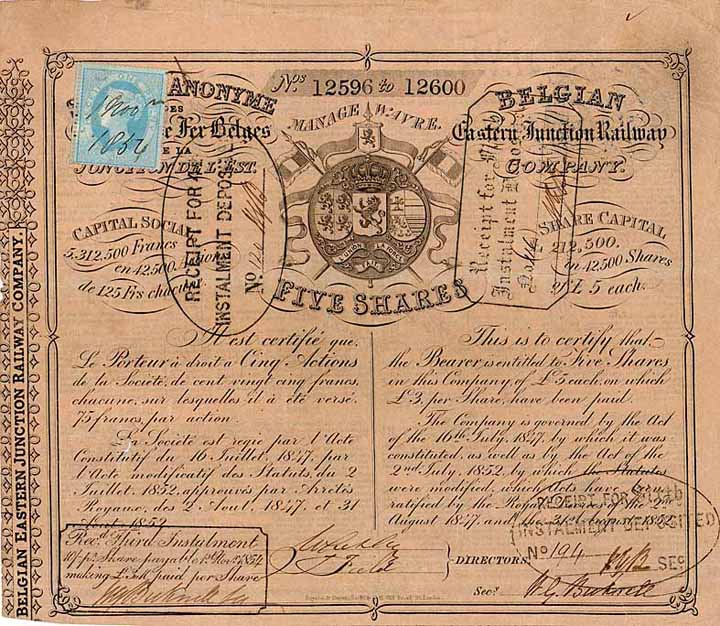 Nos 12596 to 12600
ANONYME
Fer Belges
DE LA
JONCTION DE L'EST.
MANAGE WAVRE.
BELGIAN
Eastern Junction Railway
COMPANY.
1854
CAPITAL SOCIAL
5,312,500 Francs
en 42,500
de 125 Frs chacune
SHARE CAPITAL
£ 212,500.
in 42,500 Shares
of £ 5 each.
L'UNION FAIT LA FORCE
FIVE SHARES
RECEIPT FOR
INSTALMENT DEPOSITED
No
Receipt for
Instalment
Il est certifié que
Le Porteur à droit a Cinq Actions
de la Société, de cent vingt cinq francs,
chacune, sur lesquelles il a été versé
75 francs, par action.
La Société est regie par l'Acte
Constitutif du 16 Juillet, 1847, par
l'Acte modificatif des Statuts, du 2
Juillet, 1852, approuvés par Arretés
Royaux, des 2 Aout, 1847, et 31
Aout 1852
This is to certify that
the Bearer is entitled to Five Shares
in this Company, of £ 5 each, on which
£ 3, per Share, have been paid.
The Company is governed by the Act
of the 16th July, 1847, by which it was
constituted, as well as by the Act of the
2nd July, 1852, by which the Statutes
were modified, which Acts have been
ratified by the Royal Decrees of the 2nd
August 1847, and the 31st August 1852
RECEIPT FOR Sixth
INSTALMENT DEPOSITED
No 194
SEC
Recd Third Instalment
10/ p Share payable 1st Nov 1854
making paid per Share
DIRECTORS.
Secy
BELGIAN EASTERN JUNCTION RAILWAY COMPANY.